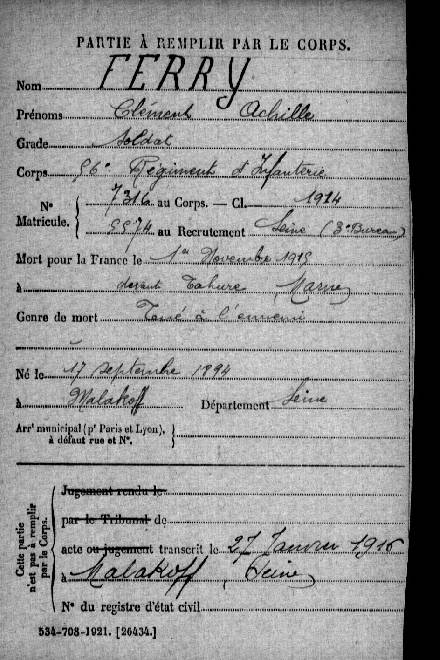 PARTIE À REMPLIR PAR LE CORPS.
Nom FERRY
Prénoms Clément Achille
Grade Soldat
Corps 56e Régiment d'Infanterie
N° Matricule. { 7316 au Corps. — Cl. 1914
5574 au Recrutement Seine (3e Bureau)
Mort pour la France le 1er Novembre 1915
à devant Tahure, Marne
Genre de mort Tué à l'ennemi
Né le 17 septembre 1894
à Malakoff Département Seine
Arrt municipal (pr Paris et Lyon), à défaut rue et N°. }
Cette partie n'est pas à remplir par le Corps.
Jugement rendu le
par le Tribunal de
acte ou jugement transcrit le 27 Janvier 1916
à Malakoff, Seine
N° du registre d'état civil
534-708-1921. [26434.]